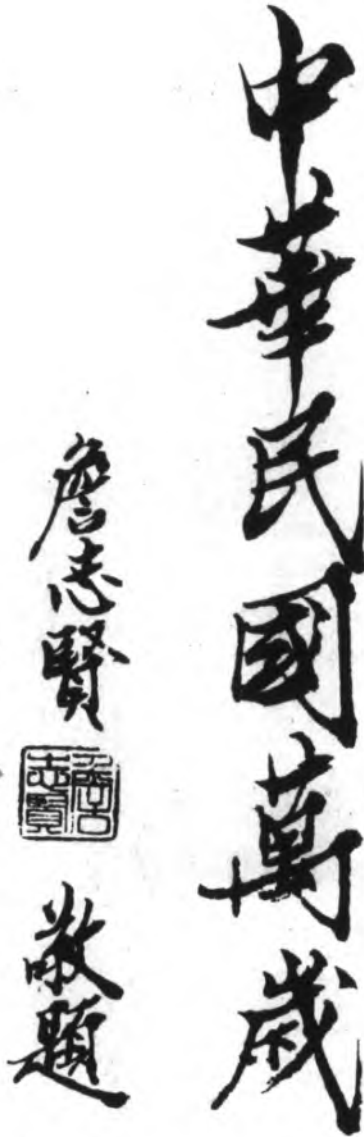 中華民國萬歲
詹志賢
詹志賢
敬題